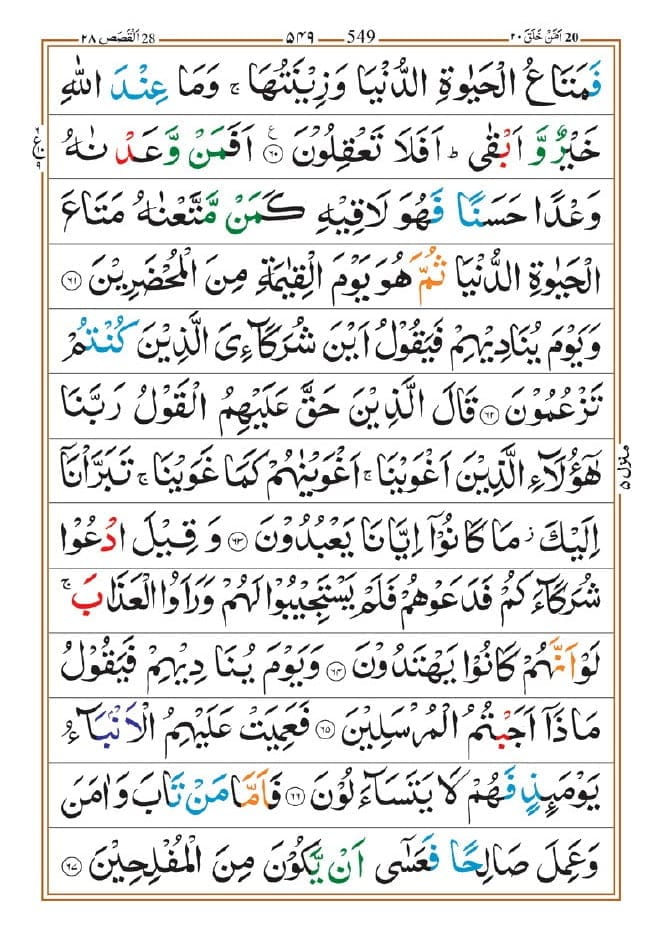 20 اَمَّنْ خَلَقَ ٢٠ 549 ۵۴۹ 28 اَلْقَصَص ٢٨
فَمَتَاعُ الْحَيٰوةِ الدُّنْيَا وَزِيْنَتُهَا ۚ وَمَا عِنْدَ اللّٰهِ
خَيْرٌ وَّ اَبْقٰى ؕ اَفَلَا تَعْقِلُوْنَ ۧ‏﴿۶۰﴾ اَفَمَنْ وَّعَدْنٰهُ
وَعْدًا حَسَنًا فَهُوَ لَاقِيْهِ كَمَنْ مَّتَّعْنٰهُ مَتَاعَ
الْحَيٰوةِ الدُّنْيَا ثُمَّ هُوَ يَوْمَ الْقِيٰمَةِ مِنَ الْمُحْضَرِيْنَ ﴿۶۱﴾
وَيَوْمَ يُنَادِيْهِمْ فَيَقُوْلُ اَيْنَ شُرَكَآءِىَ الَّذِيْنَ كُنْتُمْ
تَزْعُمُوْنَ ﴿۶۲﴾ قَالَ الَّذِيْنَ حَقَّ عَلَيْهِمُ الْقَوْلُ رَبَّنَا
هٰٓؤُلَآءِ الَّذِيْنَ اَغْوَيْنَا ۚ اَغْوَيْنٰهُمْ كَمَا غَوَيْنَا ۚ تَبَرَّاْنَاۤ
اِلَيْكَ ؗ مَا كَانُوْۤا اِيَّانَا يَعْبُدُوْنَ ﴿۶۳﴾ وَ قِيْلَ ادْعُوْا
شُرَكَآءَكُمْ فَدَعَوْهُمْ فَلَمْ يَسْتَجِيْبُوْا لَهُمْ وَرَاَوُا الْعَذَابَ ۚ
لَوْ اَنَّهُمْ كَانُوْا يَهْتَدُوْنَ ﴿۶۴﴾ وَيَوْمَ يُنَادِيْهِمْ فَيَقُوْلُ
مَاذَاۤ اَجَبْتُمُ الْمُرْسَلِيْنَ ﴿۶۵﴾ فَعَمِيَتْ عَلَيْهِمُ الْاَنْۢبَآءُ
يَوْمَئِذٍ فَهُمْ لَا يَتَسَآءَلُوْنَ ﴿۶۶﴾ فَاَمَّا مَنْ تَابَ وَاٰمَنَ
وَعَمِلَ صَالِحًا فَعَسٰٓى اَنْ يَّكُوْنَ مِنَ الْمُفْلِحِيْنَ ﴿۶۷﴾
منزل ۵